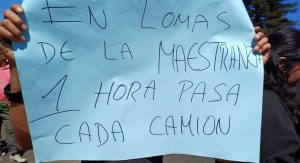 EN LOMAS
DE LA MAESTRANZA
1 HORA PASA
CADA CAMION